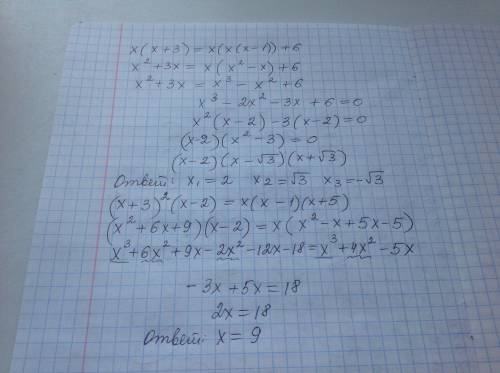 x(x+3) = x(x(x-1))+6
x²+3x = x(x²-x)+6
x²+3x = x³-x²+6
x³-2x²-3x+6=0
x²(x-2)-3(x-2)=0
(x-2)(x²-3)=0
(x-2)(x-√3)(x+√3)
Ответ: x₁=2 x₂=√3 x₃=-√3
(x+3)²(x-2)=x(x-1)(x+5)
(x²+6x+9)(x-2)=x(x²-x+5x-5)
x³+6x²+9x-2x²-12x-18=x³+4x²-5x
-3x+5x=18
2x=18
Ответ: x=9